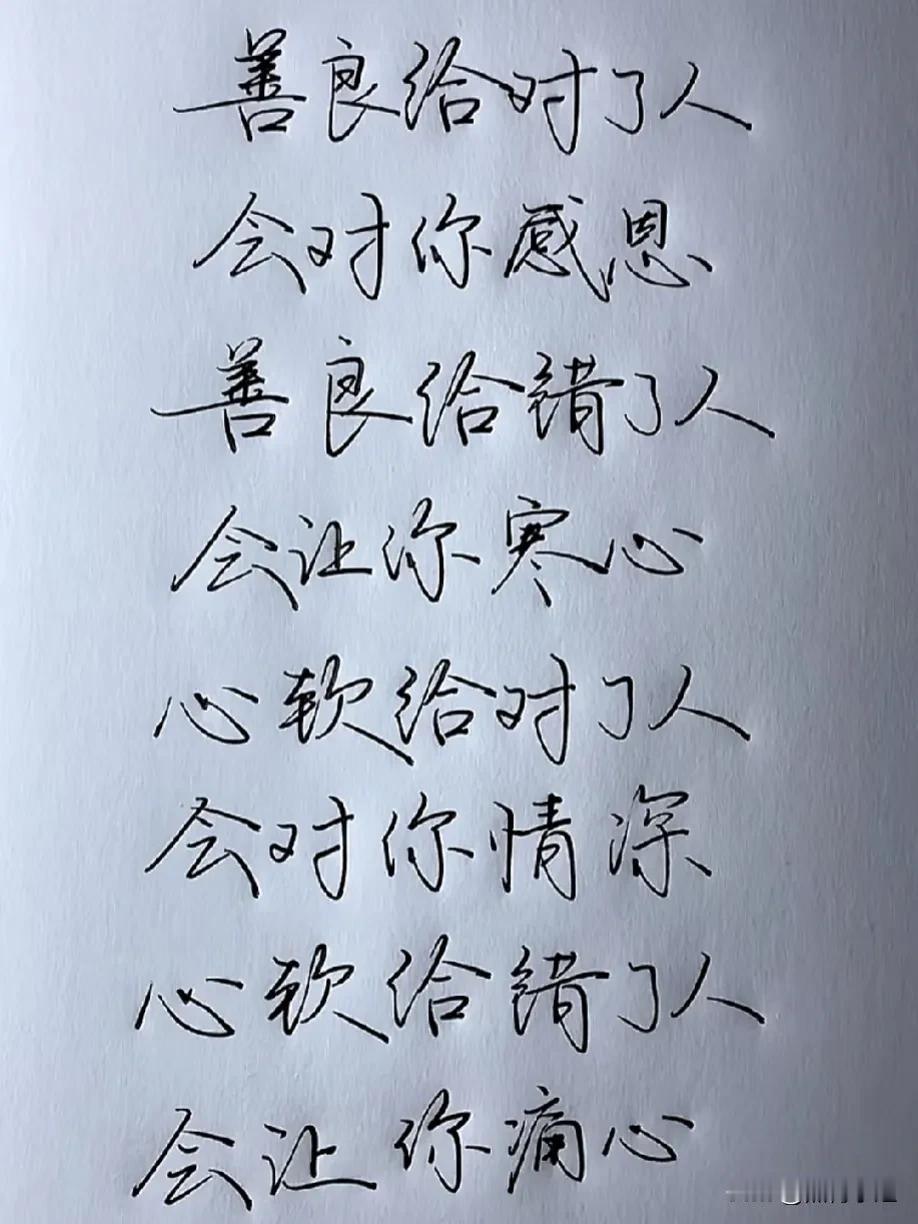 善良给对了人
会对你感恩
善良给错了人
会让你寒心
心软给对了人
会对你情深
心软给错了人
会让你痛心